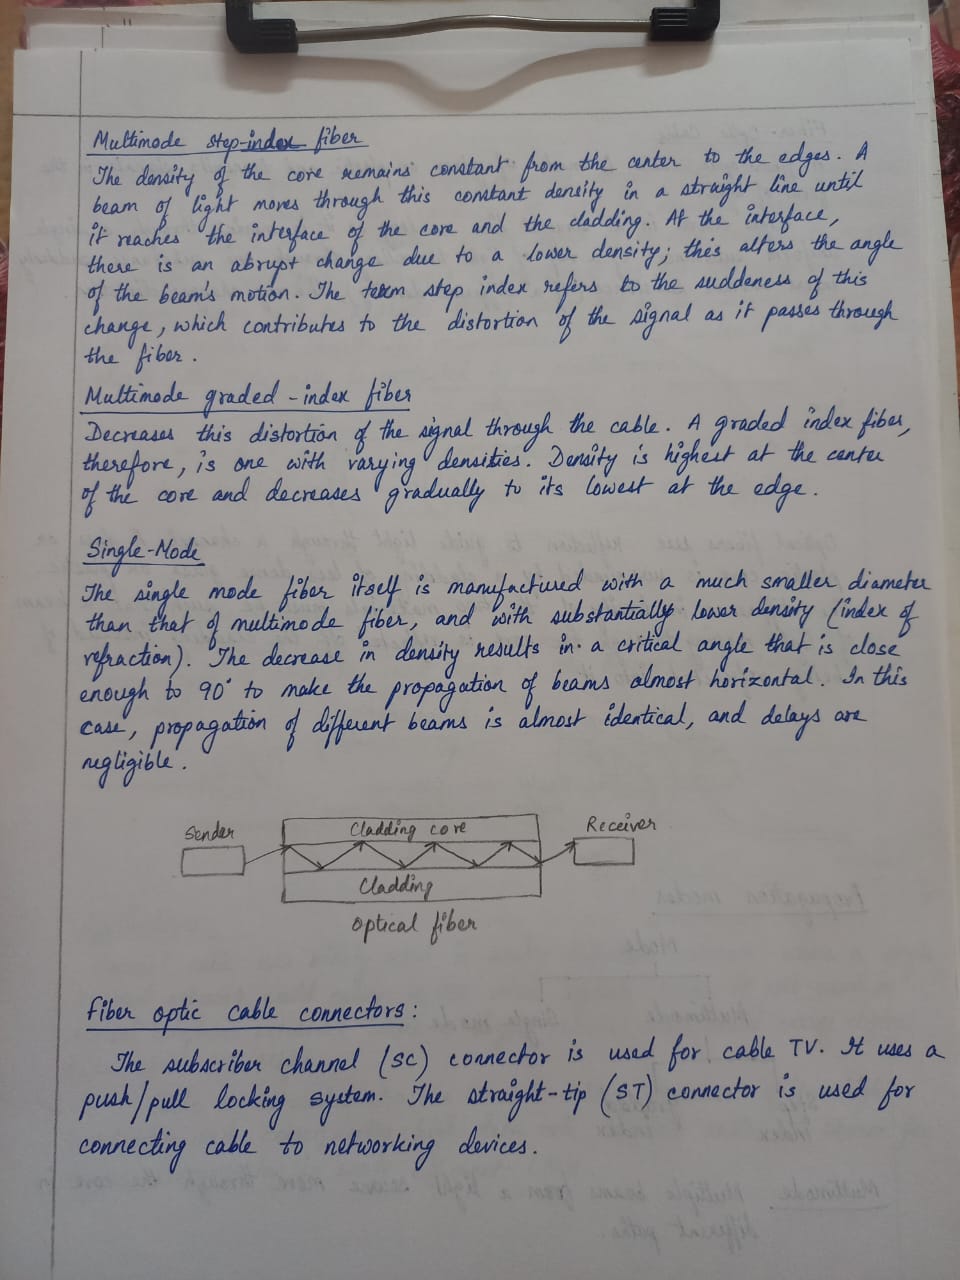 Multimode step-index fiber
The density of the core remains constant from the center to the edges. A
beam of light moves through this constant density in a straight line until
it reaches the interface of the core and the cladding. At the interface,
there is an abrupt change due to a lower density; this alters the angle
of the beam's motion. The term step index refers to the suddeness of this
change, which contributes to the distortion of the signal as it passes through
the fiber.
Multimode graded-index fiber
Decreases this distortion of the signal through the cable. A graded index fiber,
therefore, is one with varying densities. Density is highest at the center
of the core and decreases gradually to its lowest at the edge.
Single-Mode
The single mode fiber itself is manufactured with a much smaller diameter
than that of multimode fiber, and with substantially lower density (index of
refraction). The decrease in density results in a critical angle that is close
enough to 90° to make the propagation of beams almost horizontal. In this
case, propagation of different beams is almost identical, and delays are
negligible.
Sender Cladding core Receiver
Cladding
optical fiber
Fiber optic cable connectors:
The subscriber channel (SC) connector is used for cable TV. It uses a
push/pull locking system. The straight-tip (ST) connector is used for
connecting cable to networking devices.